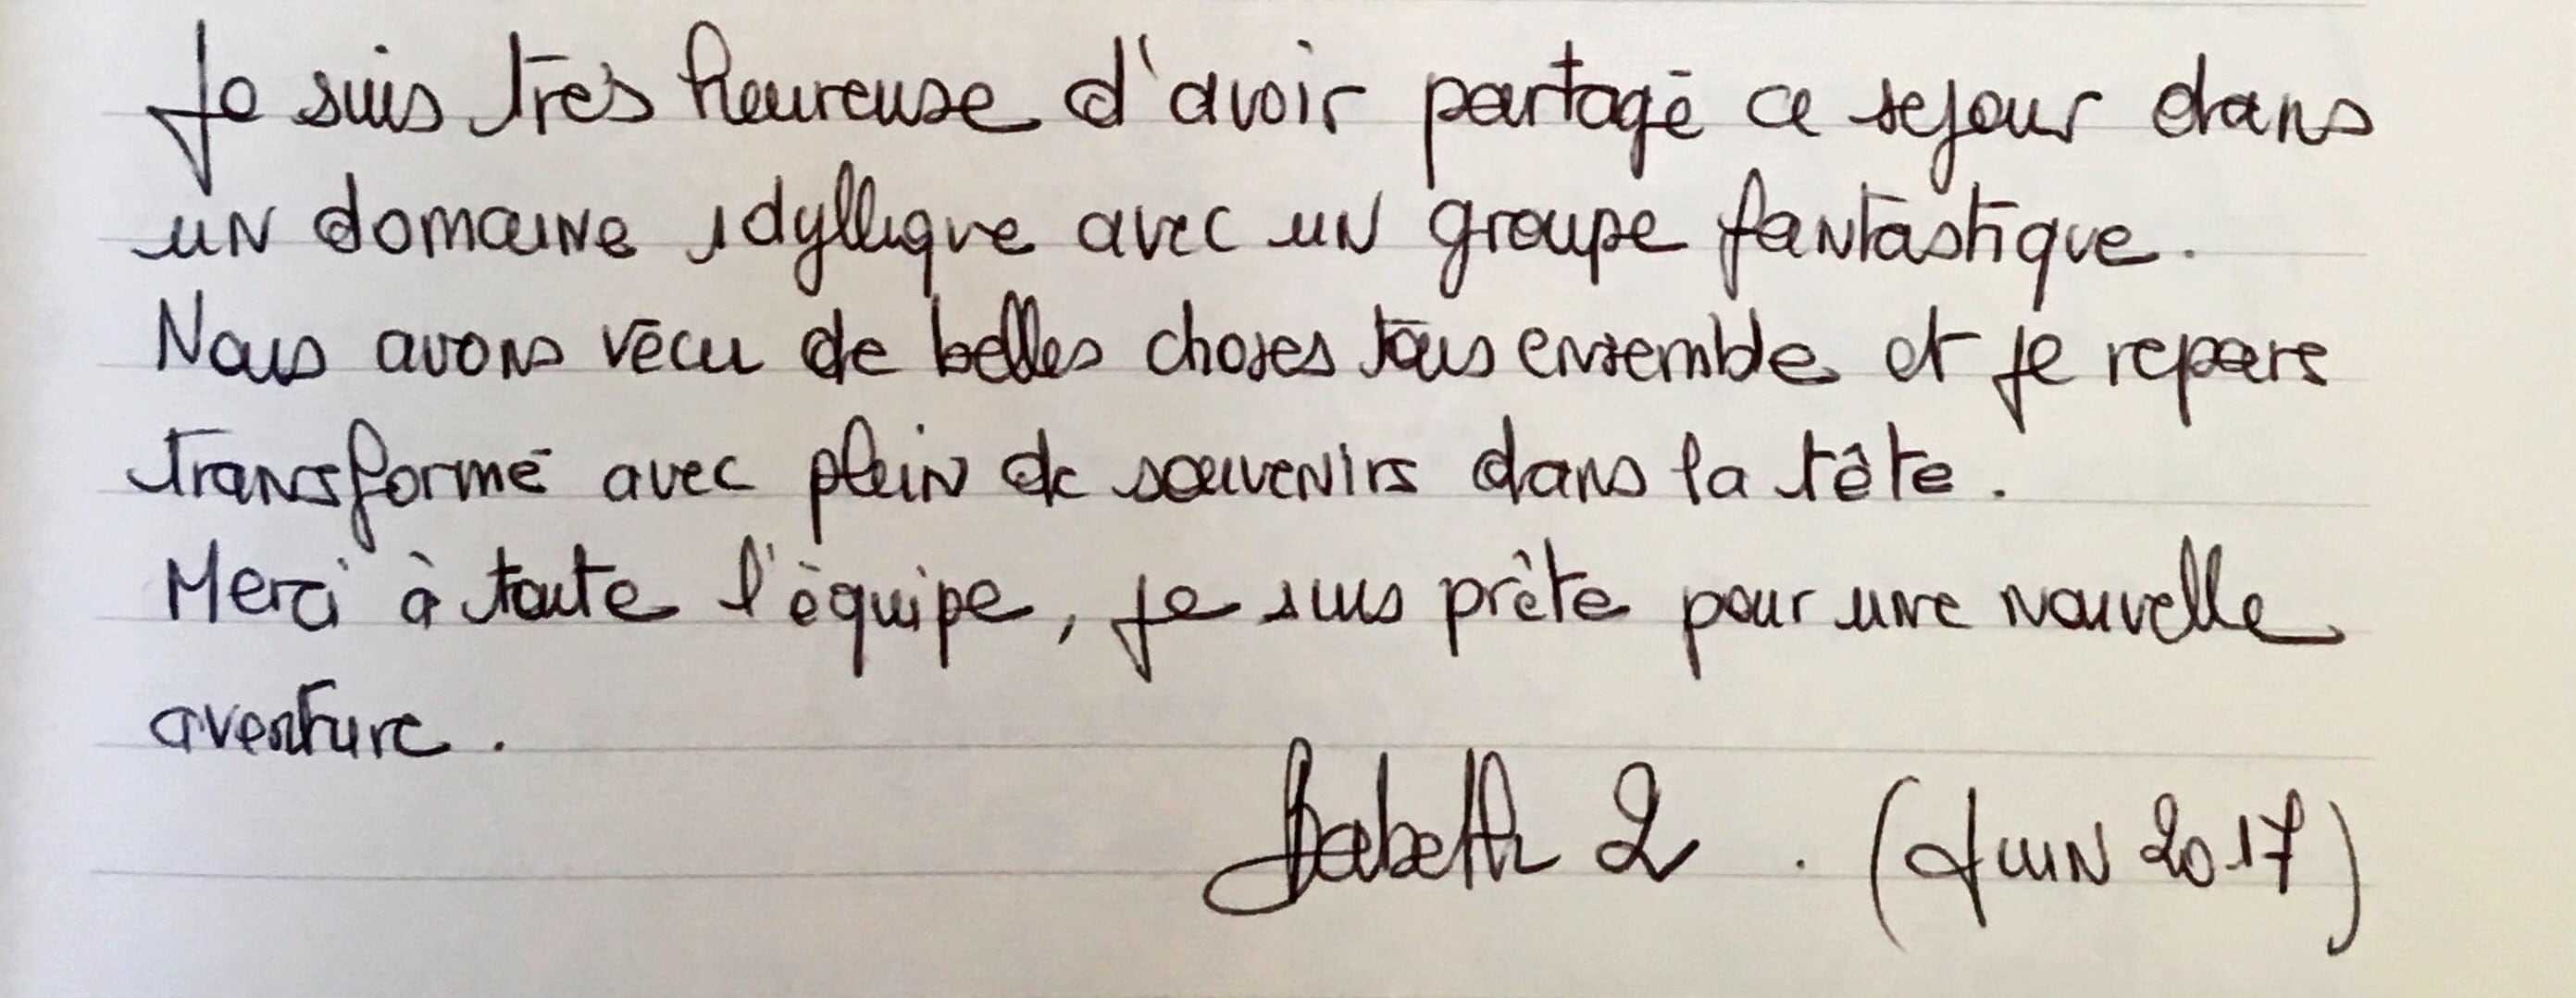 Je suis très heureuse d'avoir partagé ce sejour dans
un domaine idyllique avec un groupe fantastique.
Nous avons vécu de belles choses tous ensemble et je repars
transformé avec plein de souvenirs dans la tête.
Merci à toute l'équipe, je suis prête pour une nouvelle
aventure.
Babeth 2. (Juin 2017)